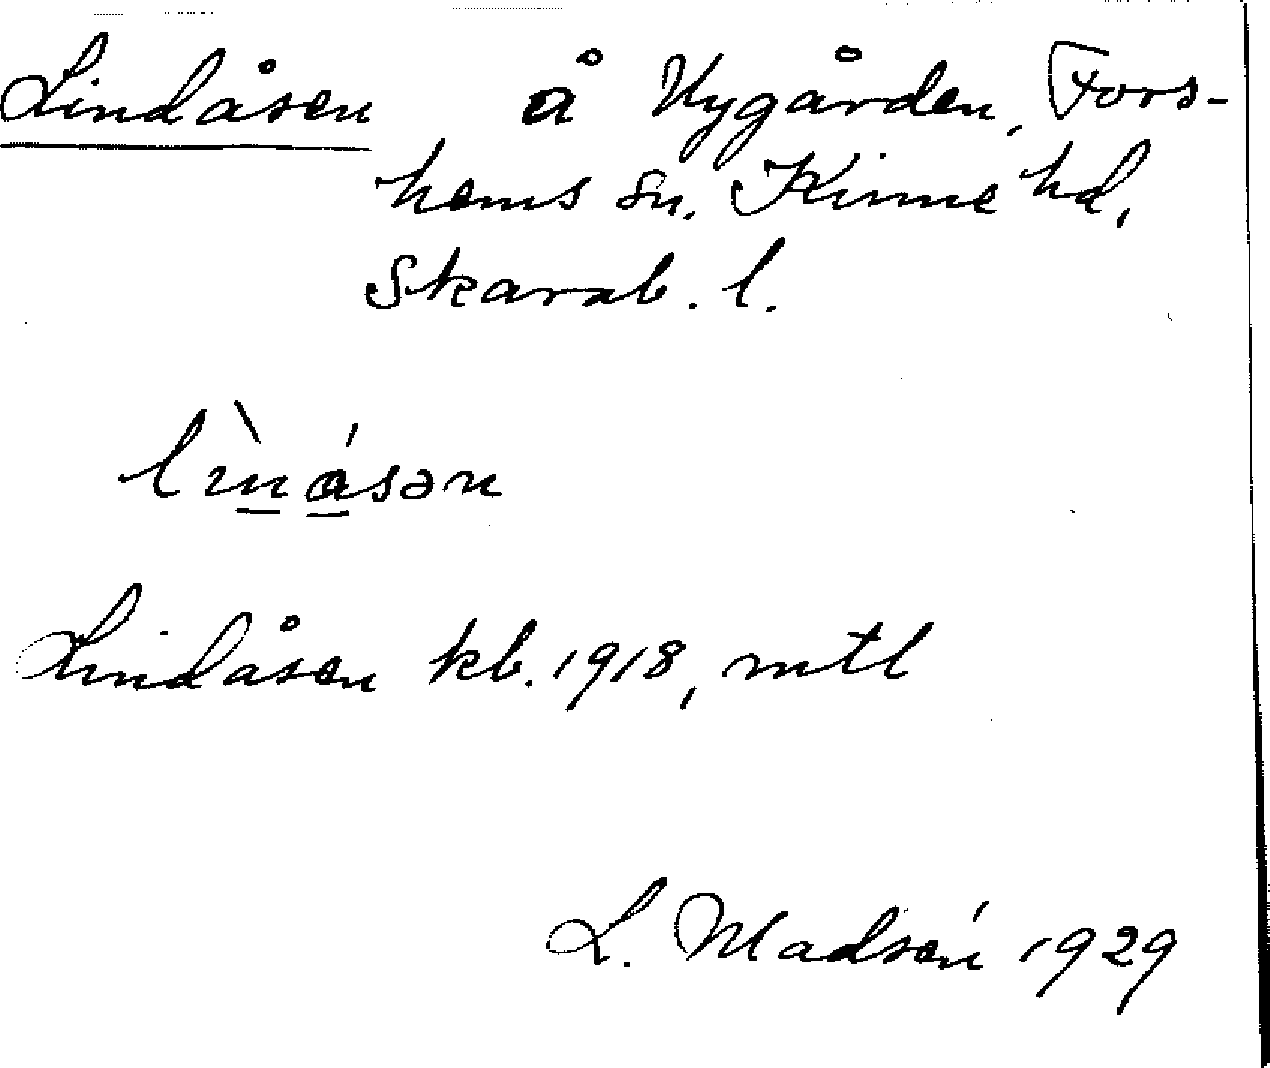 Lindåsen å Nygården, Fors-
hems sn. Kinne hd,
Skarab. l.
lìnásən
Lindåsen kb. 1918, mtl
L. Madsén 1929